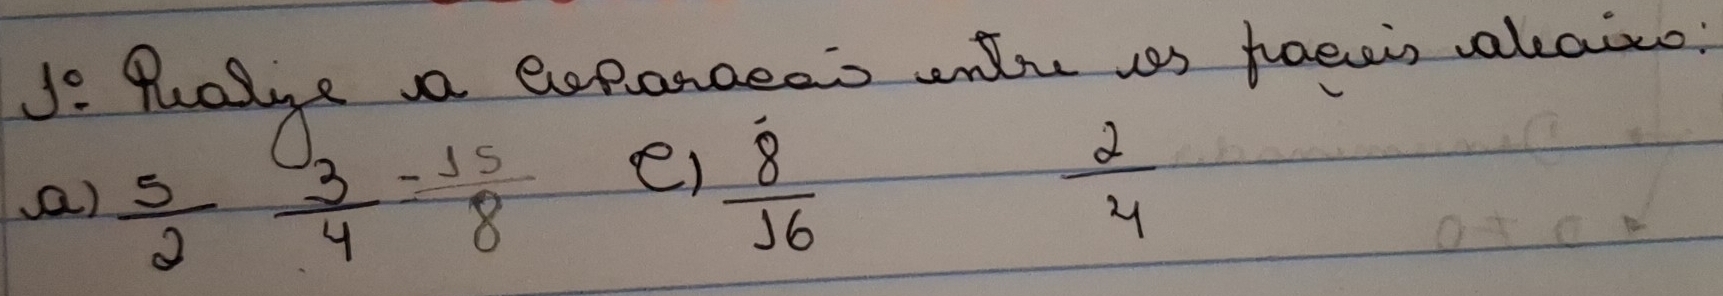 1º: Realize a comparação entre as frações abaixo:
a) 5/2 3/4 = 15/8 c) 8/16 2/4